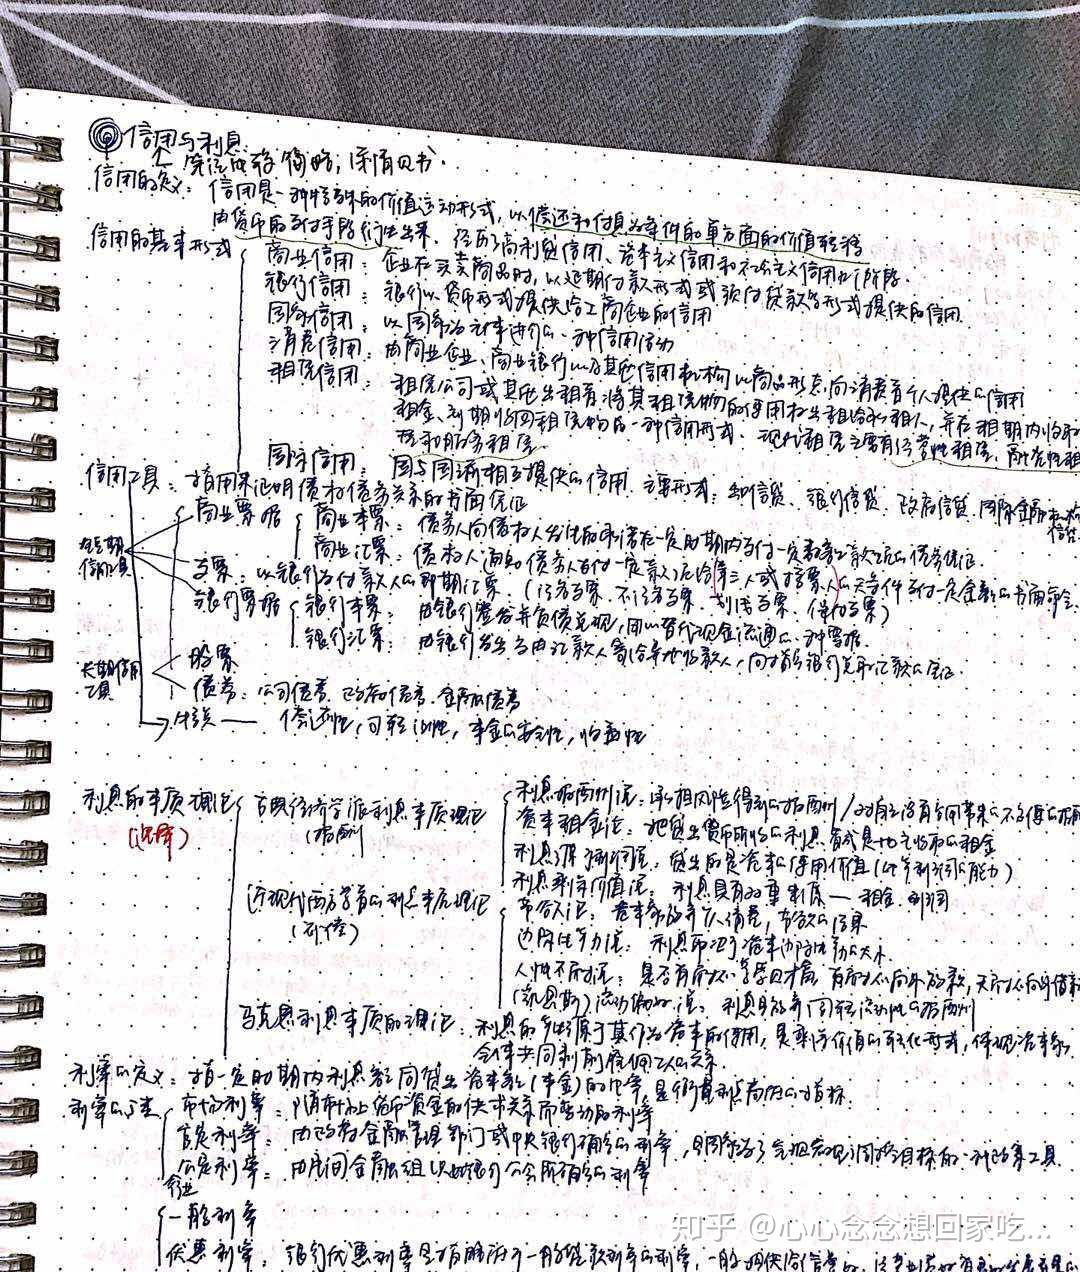 信用与利息:
信用的定义: 信用是一种特殊的价值运动形式,以偿还和付息为条件的单方面的价值转移
由货币的支付手段衍生出来、经历了高利贷信用、资本主义信用和社会主义信用几个阶段.
信用的基本形式
商业信用: 企业在买卖商品时,以延期付款形式或预付货款等形式提供的信用.
银行信用: 银行以货币形式提供给工商企业的信用
国家信用: 以国家为主体进行的一种信用活动
消费信用: 由商业企业、商业银行以及其他信用机构以商品形态向消费者个人提供的信用
租赁信用: 租赁公司或其他出租者将其租赁物的使用权出租给承租人,并在租期内收取
租金、到期收回租赁物的一种信用形式. 现代租赁主要有经营性租赁、融资性租
赁和服务租赁
国际信用: 国与国之间相互提供的信用 主要形式: 出口信贷、银行信贷、政府信贷、国际金融机构
信用工具: 指用来证明债权债务关系的书面凭证
商业票据
商业本票: 债务人向债权人发出的承诺在一定时期内支付一定数额款项的债务凭证
商业汇票: 债权人通知债务人支付一定款项给第三人或持票人的无条件支付一定金额的书面命令.
短期信用工具
支票: 以银行为付款人的即期汇票. (记名支票、不记名支票、划线支票、保付支票)
银行票据
银行本票: 由银行签发并负债兑现,用以替代现金流通的一种票据
银行汇票: 由银行发出交由汇款人寄给异地收款人,向指定银行兑取汇款的凭证.
长期信用工具
股票
债券: 公司债券、政府债券、金融债券
特点—— 偿还性,可转让性,本金的安全性,收益性
利息的本质理论
(选择)
古典经济学派利息本质理论
(报酬)
利息报酬说:
资本租金论: 把贷出货币所收的利息看成是地主收取的租金
利息源于利润说: 贷出的是资本的使用价值(生产利润的能力)
利息剩余价值说: 利息具有双重来源——租金、利润
近现代西方学者的利息本质理论
(补偿)
节欲论: 资本家放弃个人消费,节欲的结果
边际生产力说: 利息取决于资本边际生产力的大小
人性不耐说:
(凯恩斯) 流动偏好说: 利息是放弃周转流动性的报酬
马克思利息本质的理论: 利息的产生源于其作为资本的使用,是剩余价值的转化形式,体现资本家
共同剥削雇佣工人的关系
利率的定义: 指一定时期内利息额同贷出资本额(本金)的比率 是衡量利息高低的指标.
利率的分类
市场利率: 随市场上货币资金的供求关系而变动的利率
官定利率: 由政府金融管理部门或中央银行确定的利率,是国家为了实现宏观调控目标的一种政策工具
公定利率: 由民间金融组织如银行公会所确定的利率
一般利率
优惠利率: 银行优惠利率是指略低于一般贷款利率的利率,
知乎 @心心念念想回家吃...